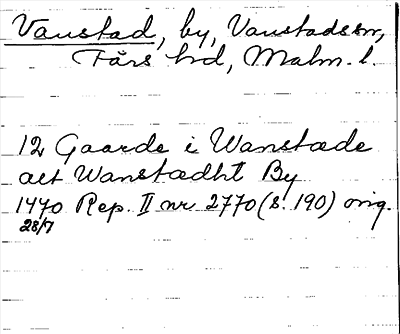 Vanstad, by, Vanstads sn,
Färs hd, Malm. l.
12 Gaarde i Wanstæde
alt Wanstædht By
1470 Rep. II nr 2770 (s. 190) orig.
28/7